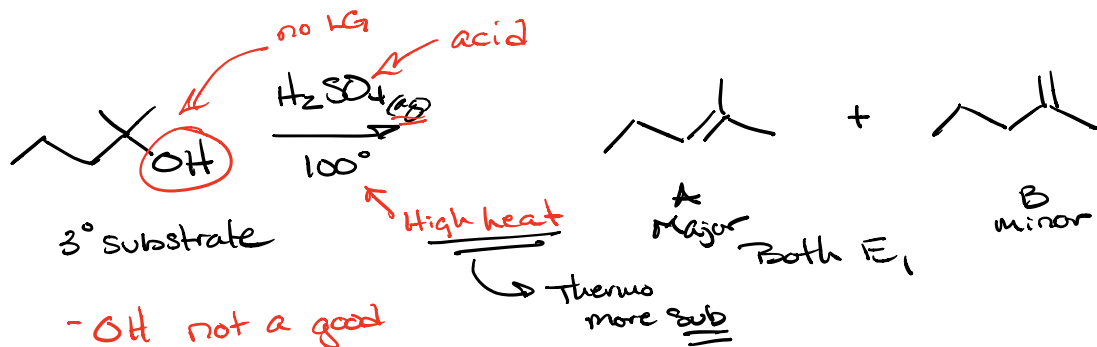 no LG
acid
H₂SO₄(aq)
OH
100°
+
3° substrate
High heat
A
Major
B
minor
Both E₁
Thermo
more sub
-OH not a good